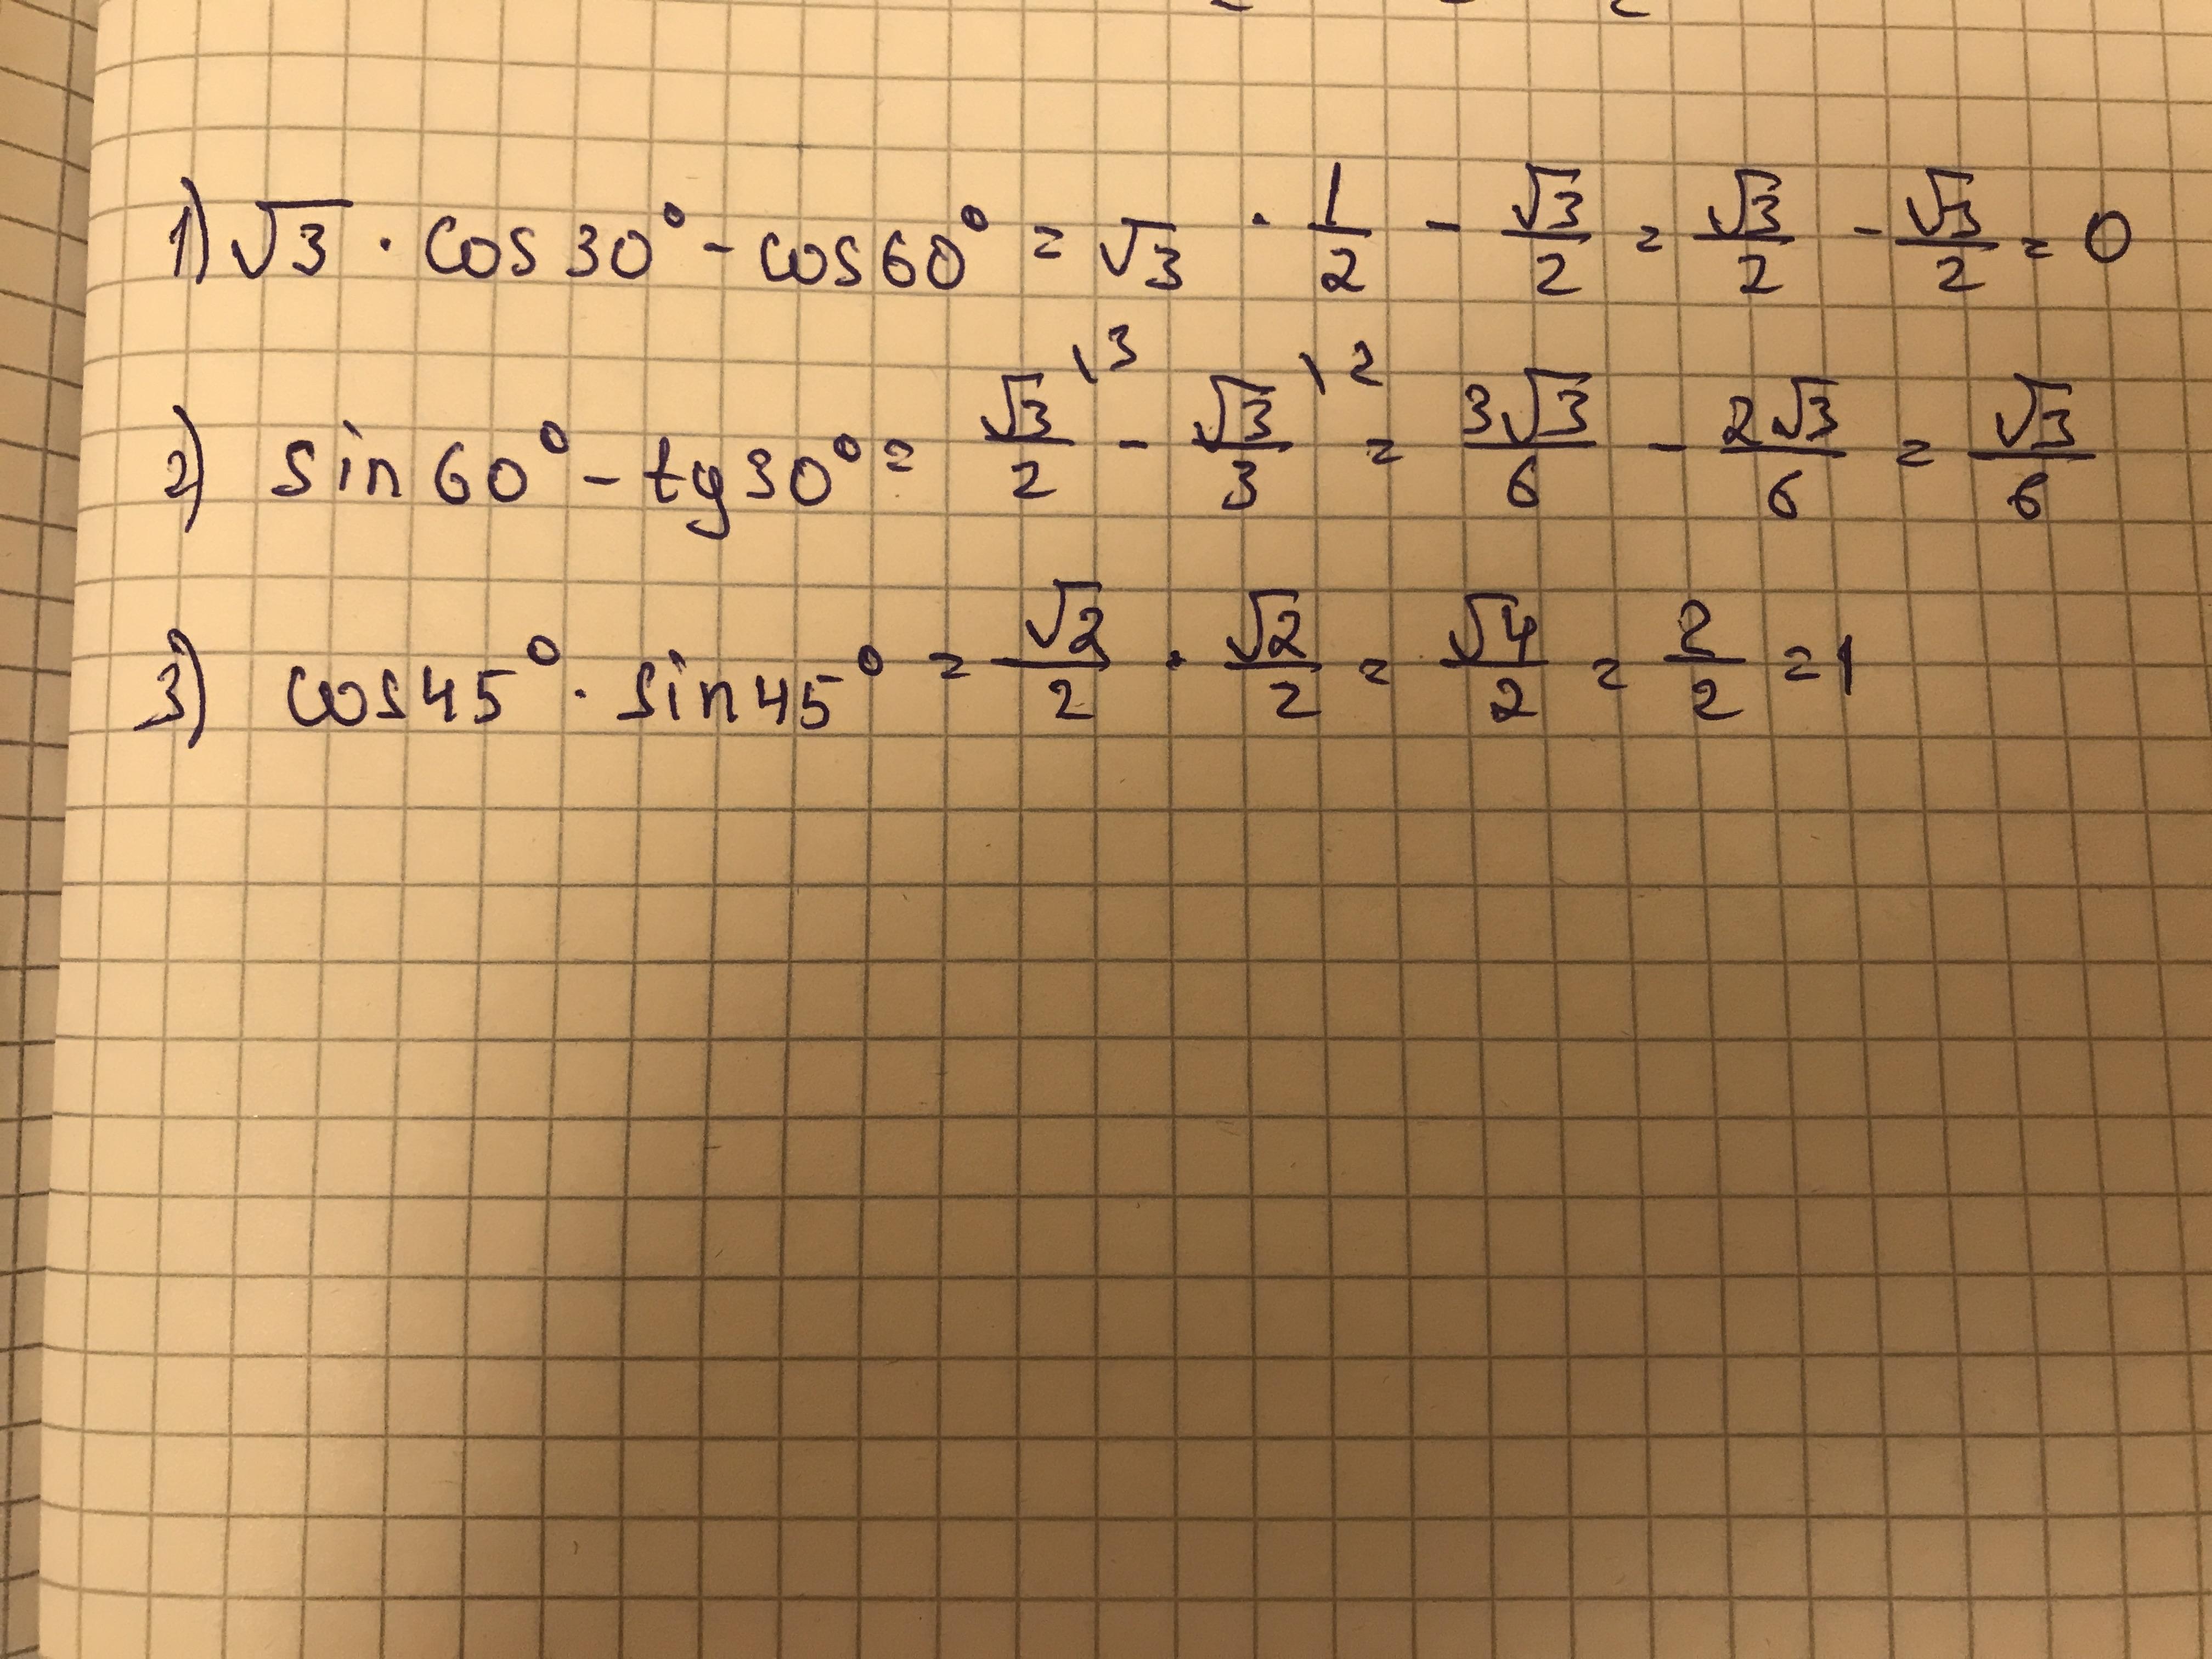 1) √3 · cos 30° - cos 60° = √3 · 1/2 - √3/2 = √3/2 - √3/2 = 0
2) sin 60° - tg 30° = √3/2 \3 - √3/3 \2 = 3√3/6 - 2√3/6 = √3/6
3) cos 45° · sin 45° = √2/2 · √2/2 = √4/2 = 2/2 = 1